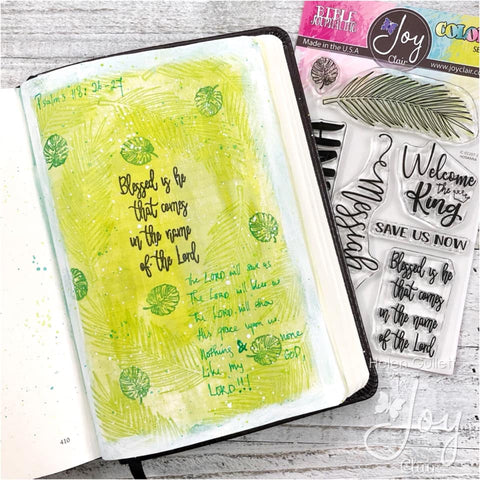 Psalm's 118: 26-27
Blessed is he
that comes
in the name
of the Lord
The LORD will save us
The LORD will bless us
The LORD will show
His grace upon us.
Nothing & none
Like my GOD,
LORD!!!
410
BIBLE
JOURNALING
Joy
Clair
Made in the U.S.A
COLO
www.joyclair.
Messiah
Welcome
the
King
SAVE US NOW
Blessed is he
that comes
in the name
of the Lord
Joy
Clair